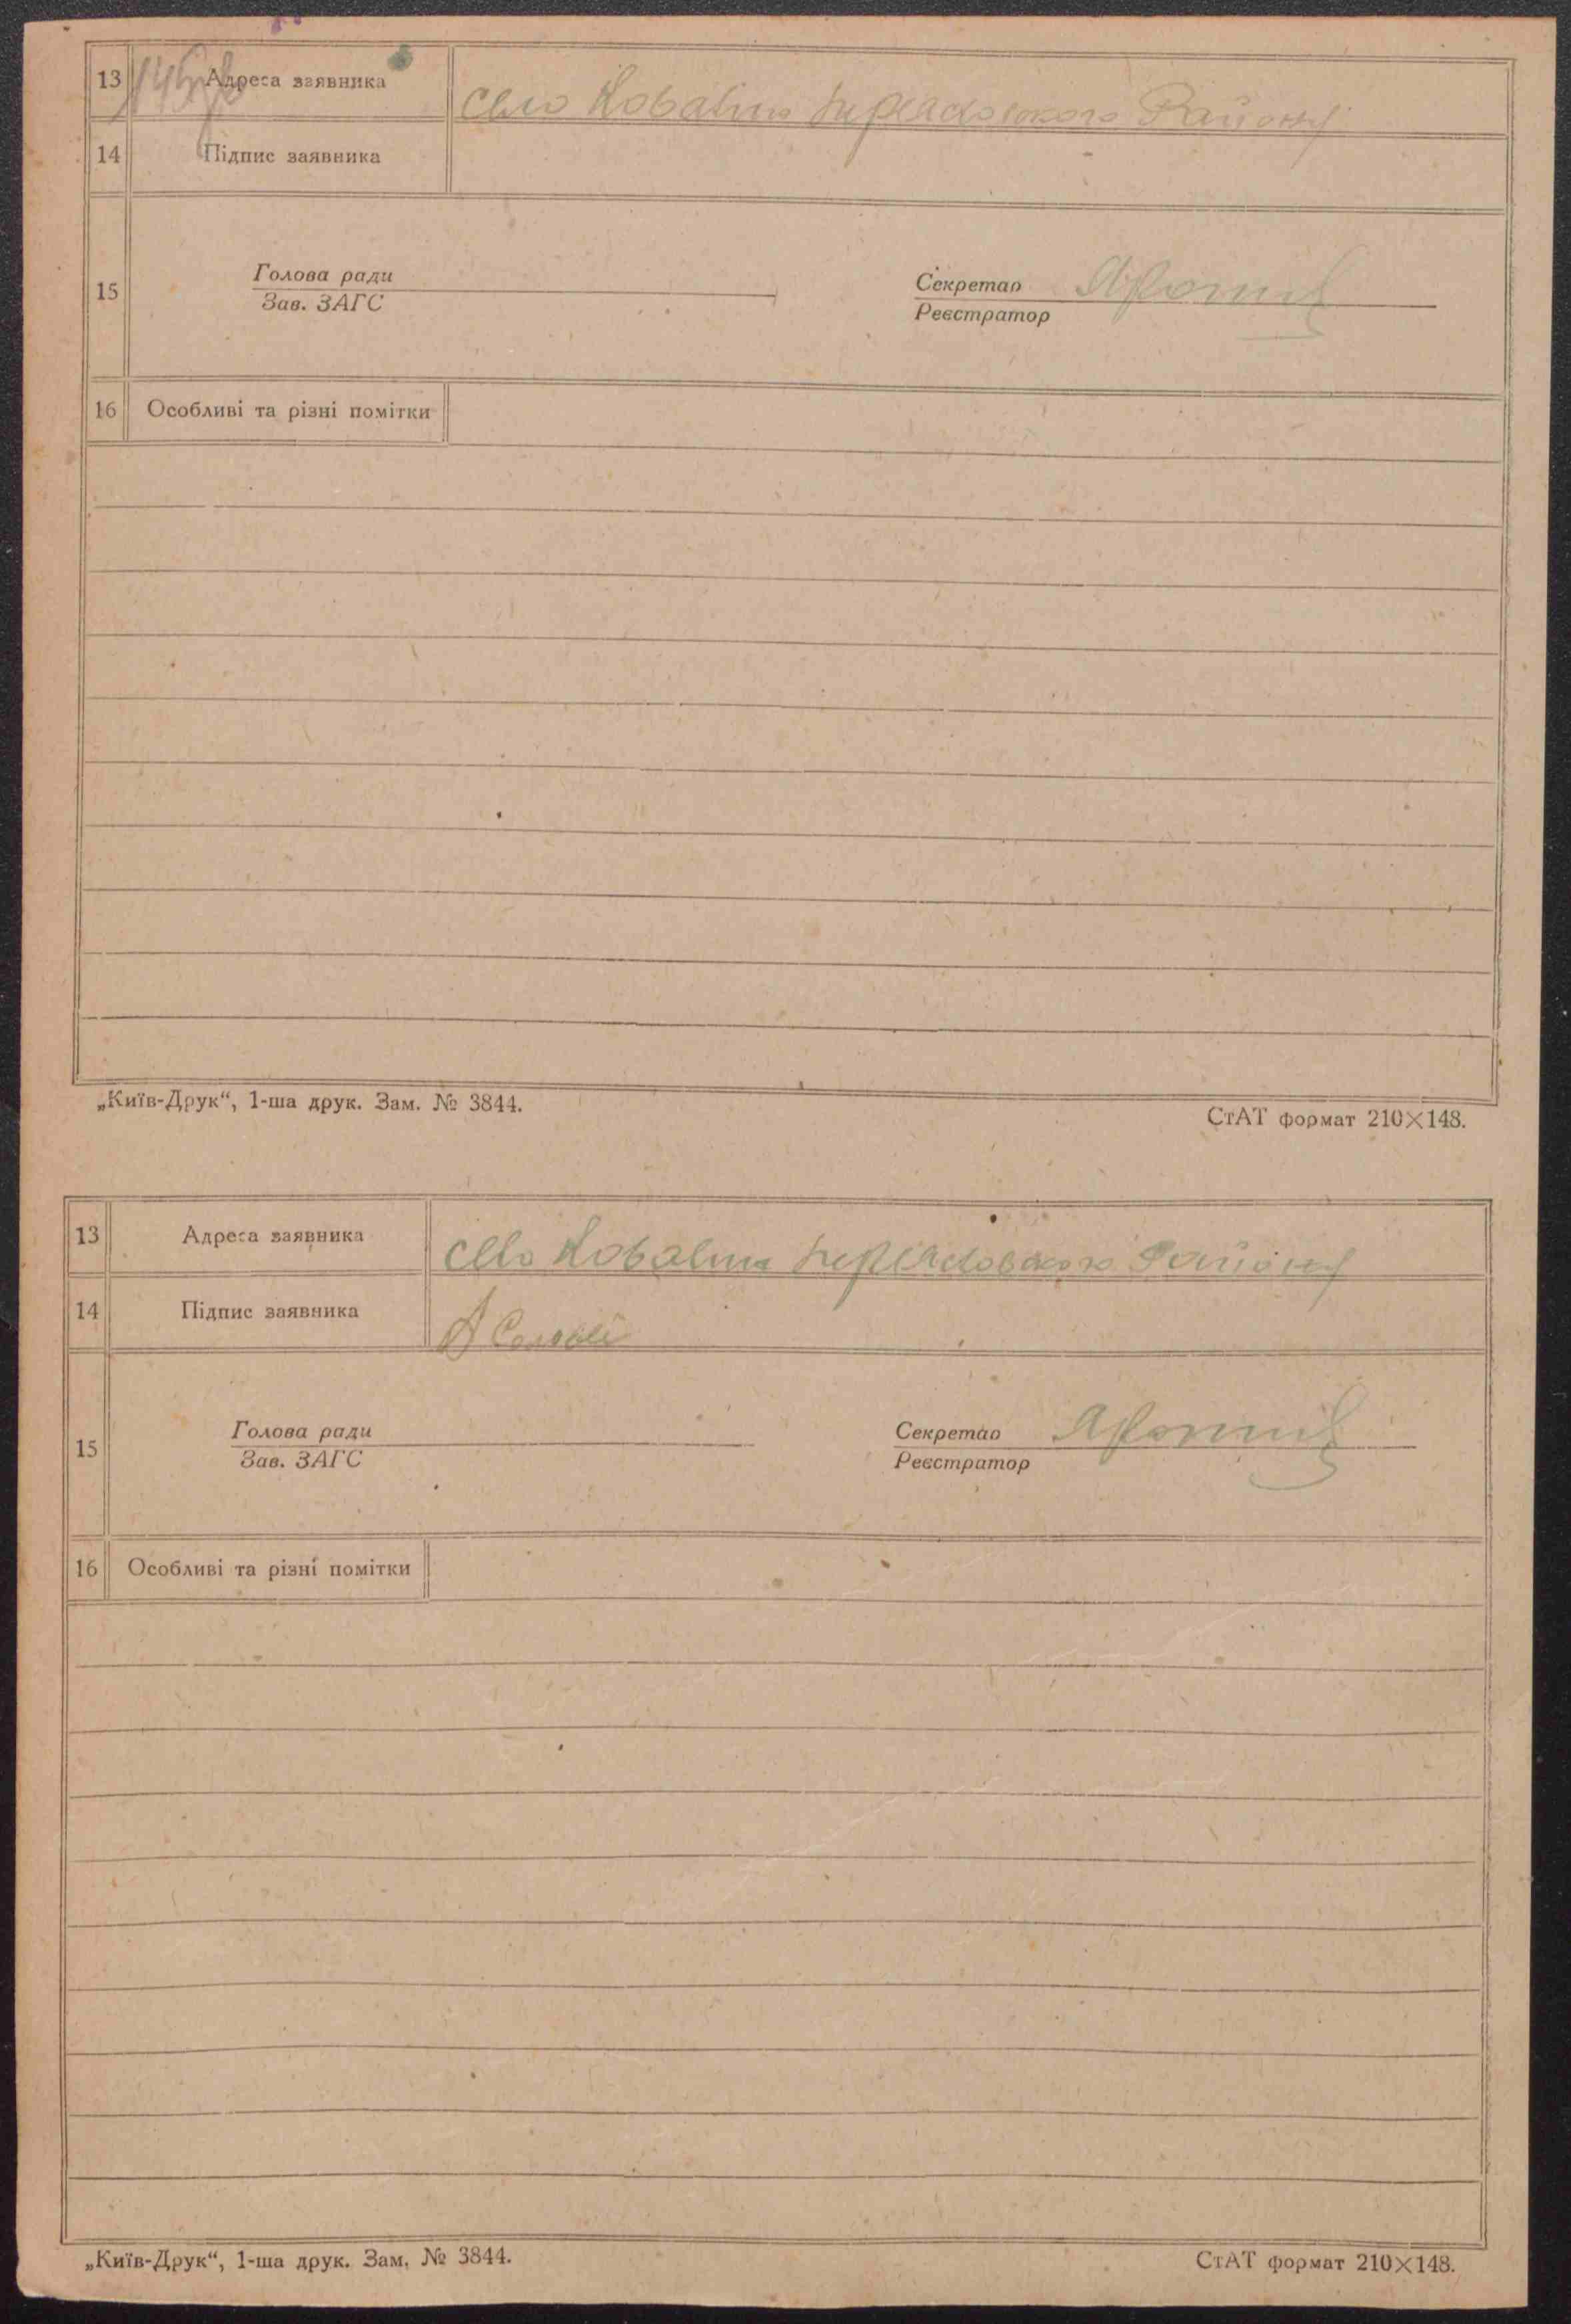 13 Адреса заявника село Ковалин Району
14 Підпис заявника
Голова ради
Секретар
15
Зав. ЗАГС
Реєстратор
16 Особливі та різні помітки
„Київ-Друк“, 1-ша друк. Зам. № 3844.
СтАТ формат 210×148.
13 Адреса заявника село Ковалин Району
14 Підпис заявника
Голова ради
Секретар
15
Зав. ЗАГС
Реєстратор
16 Особливі та різні помітки
„Київ-Друк“, 1-ша друк. Зам. № 3844.
СтАТ формат 210×148.